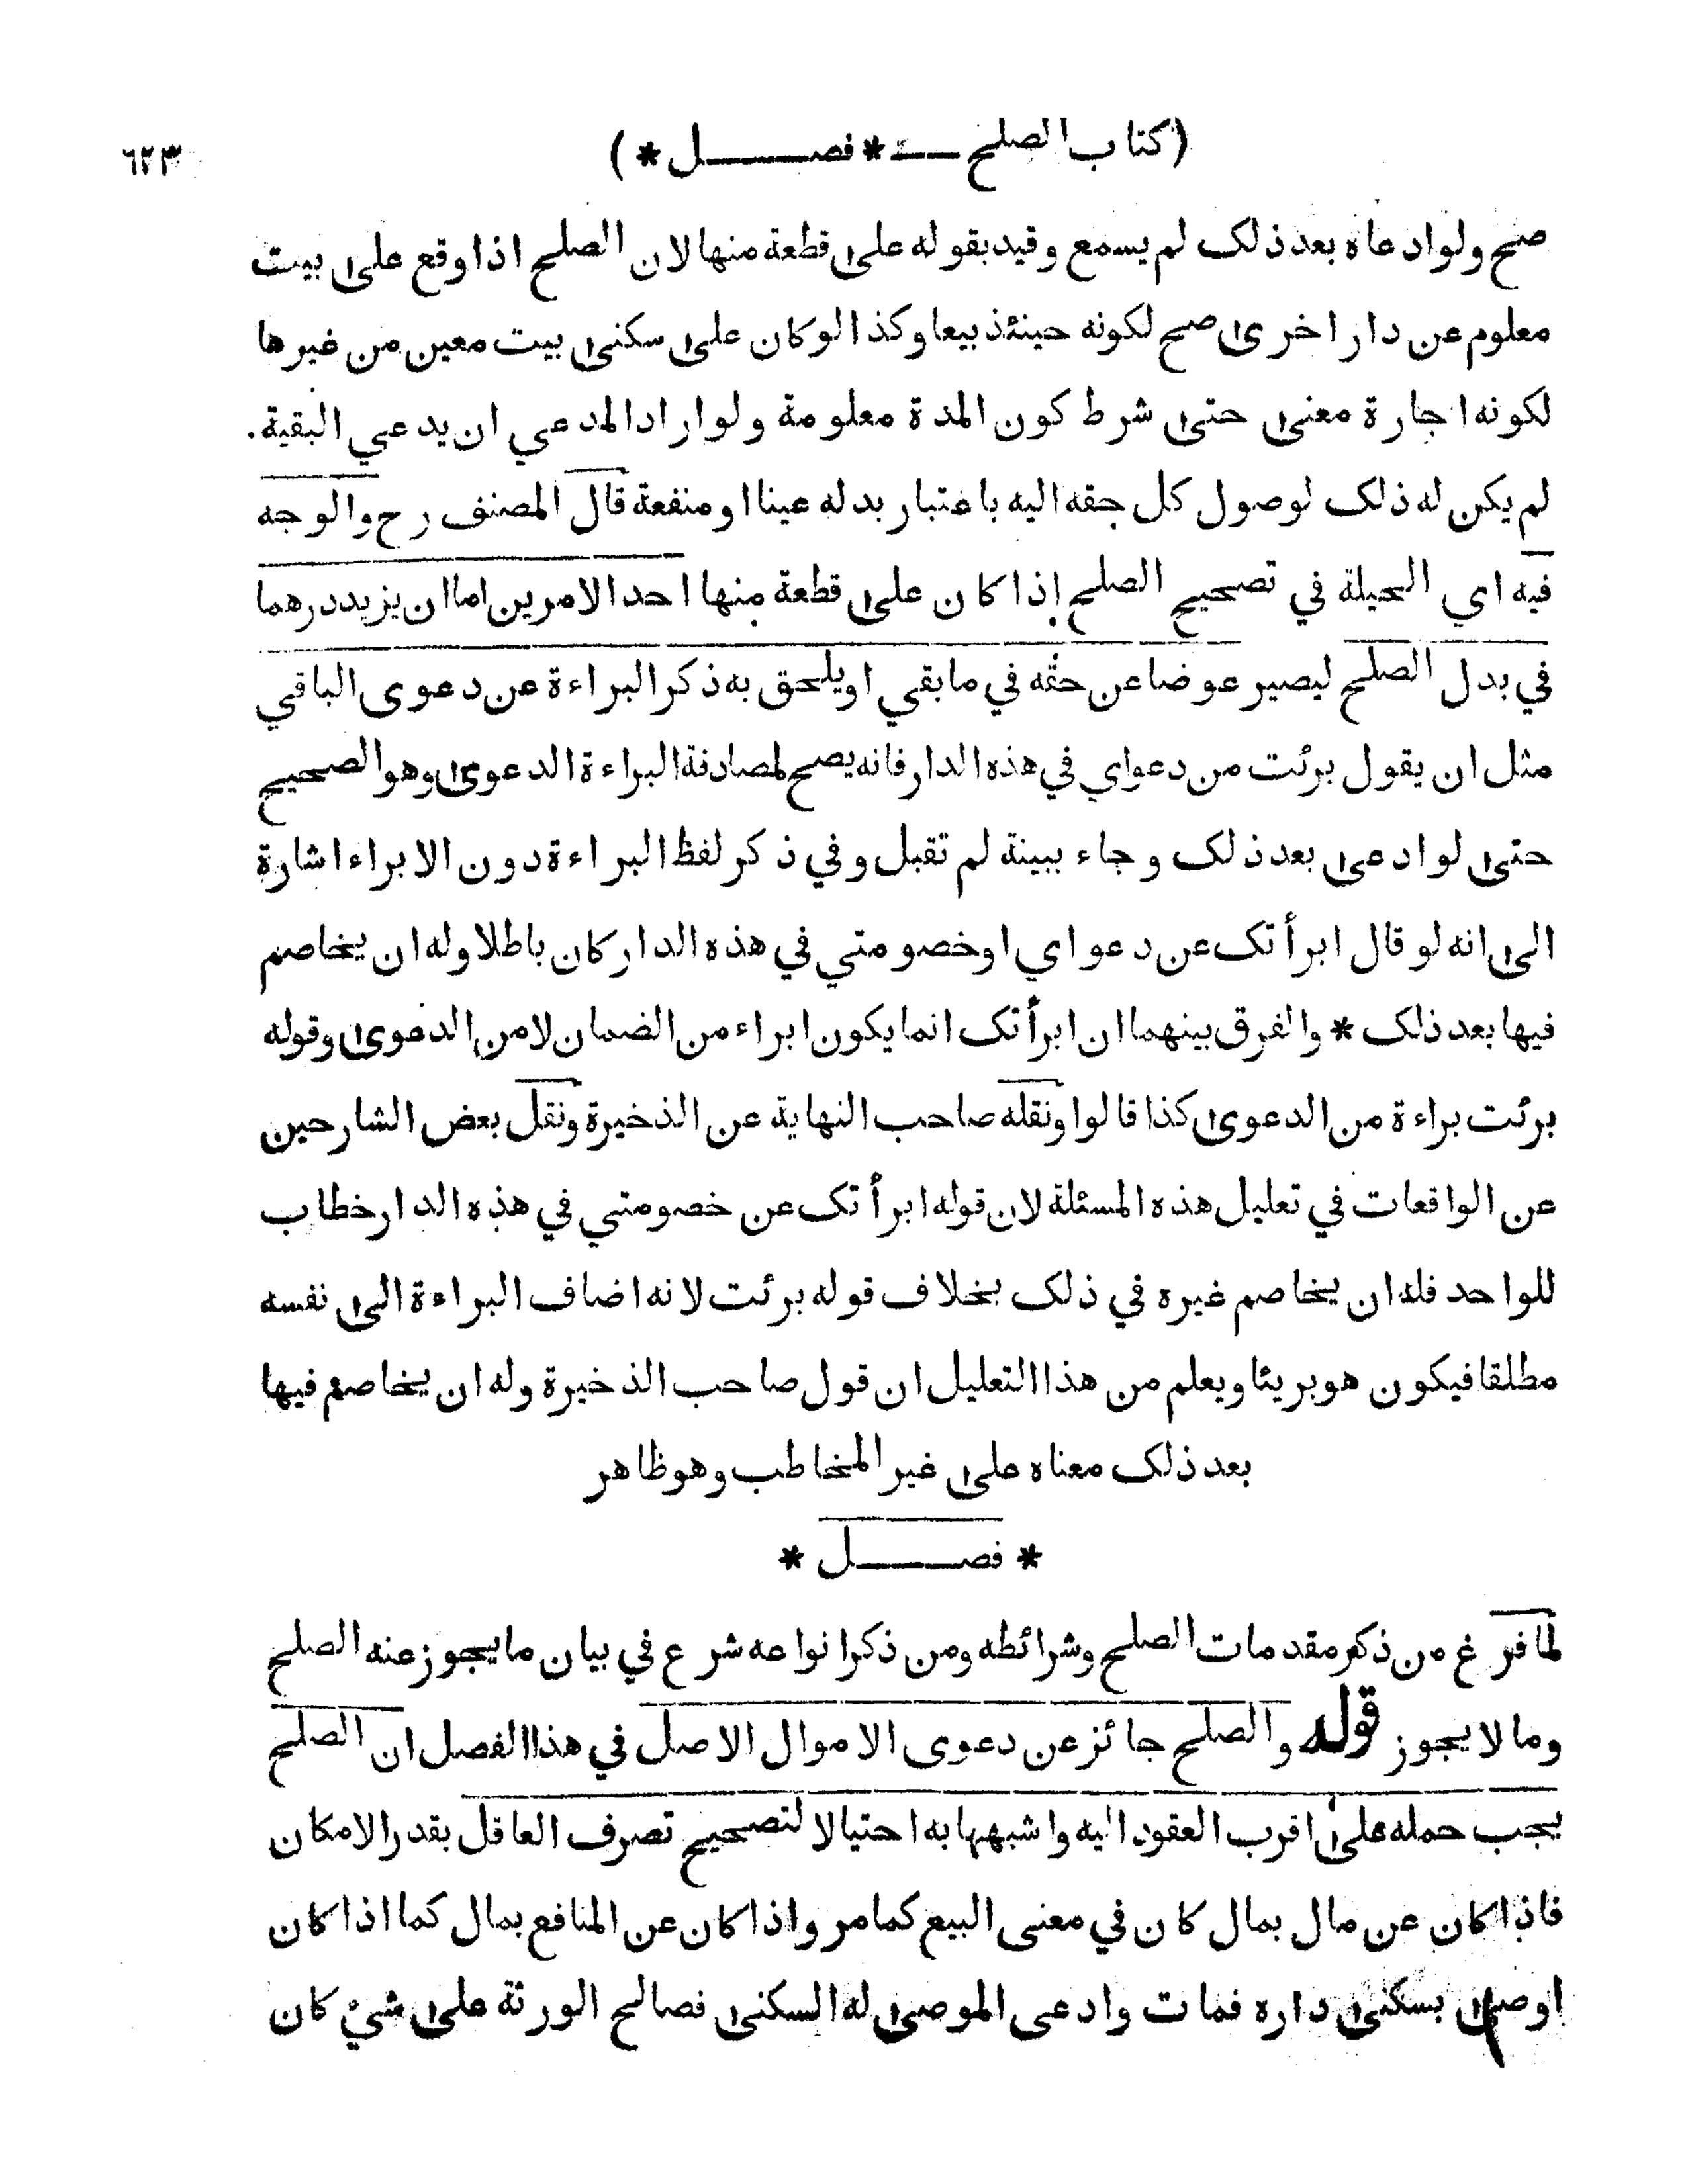 (كتاب الصلح — * فصــل *)
٦٢٣
صح ولو ادعاه بعد ذلك لم يسمع وقيد بقوله على قطعة منها لان الصلح اذا وقع على بيت
معلوم عن دار اخرى صح لكونه حينئذ بيعا وكذا لو كان على سكنى بيت معين من غيرها
لكونه اجارة معنى حتى شرط كون المدة معلومة ولو اراد المدعي ان يدعي البقية.
لم يكن له ذلك لوصول كل حقه اليه باعتبار بدله عينا او منفعة قال المصنف رح والوجه
فيه اي الحيلة في تصحيح الصلح إذا كان على قطعة منها احد الامرين اما ان يزيد درهما
في بدل الصلح ليصير عوضا عن حقه في ما بقي او يلحق به ذكر البراءة عن دعوى الباقي
مثل ان يقول برئت من دعواي في هذه الدار فانه يصح لمصادفة البراءة الدعوى وهو الصحيح
حتى لو ادعى بعد ذلك وجاء ببينة لم تقبل وفي ذكر لفظ البراءة دون الابراء اشارة
الى انه لو قال ابرأتك عن دعواي او خصومتي في هذه الدار كان باطلا وله ان يخاصم
فيها بعد ذلك * والفرق بينهما ان ابرأتك انما يكون ابراء من الضمان لا من الدعوى وقوله
برئت براءة من الدعوى كذا قالوا ونقله صاحب النهاية عن الذخيرة ونقل بعض الشارحين
عن الواقعات في تعليل هذه المسئلة لان قوله ابرأتك عن خصومتي في هذه الدار خطاب
للواحد فله ان يخاصم غيره في ذلك بخلاف قوله برئت لانه اضاف البراءة الى نفسه
مطلقا فيكون هو بريئا ويعلم من هذا التعليل ان قول صاحب الذخيرة وله ان يخاصم فيها
بعد ذلك معناه على غير المخاطب وهو ظاهر
* فصــل *
لما فرغ من ذكر مقدمات الصلح وشرائطه ومن ذكر انواعه شرع في بيان ما يجوز عنه الصلح
وما لا يجوز قوله والصلح جائز عن دعوى الاموال الاصل في هذا الفصل ان الصلح
يجب حمله على اقرب العقود اليه واشبهها به احتيالا لتصحيح تصرف العاقل بقدر الامكان
فاذا كان عن مال بمال كان في معنى البيع كما مر واذا كان عن المنافع بمال كما اذا كان
اوصى بسكنى داره فمات وادعى الموصى له السكنى فصالح الورثة على شيء كان